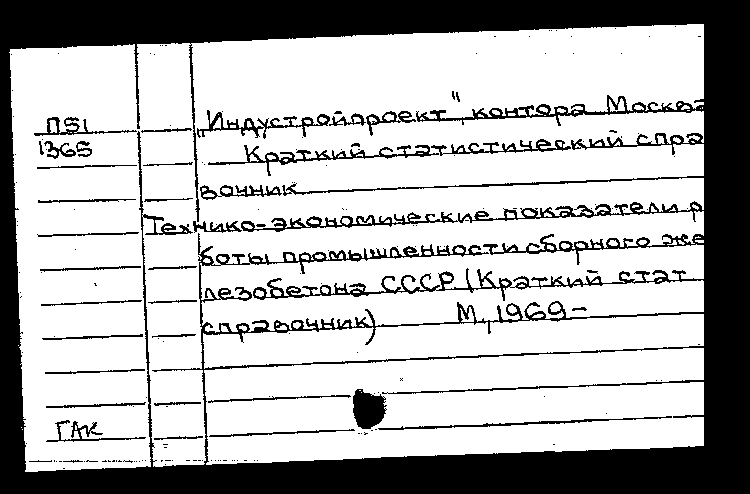 П51
1365
„Индустройпроект", контора Москва
Краткий статистический спра
вочник
Технико-экономические показатели р
боты промышленности сборного же
лезобетона СССР (Краткий стат
справочник) М., 1969-
ГАК